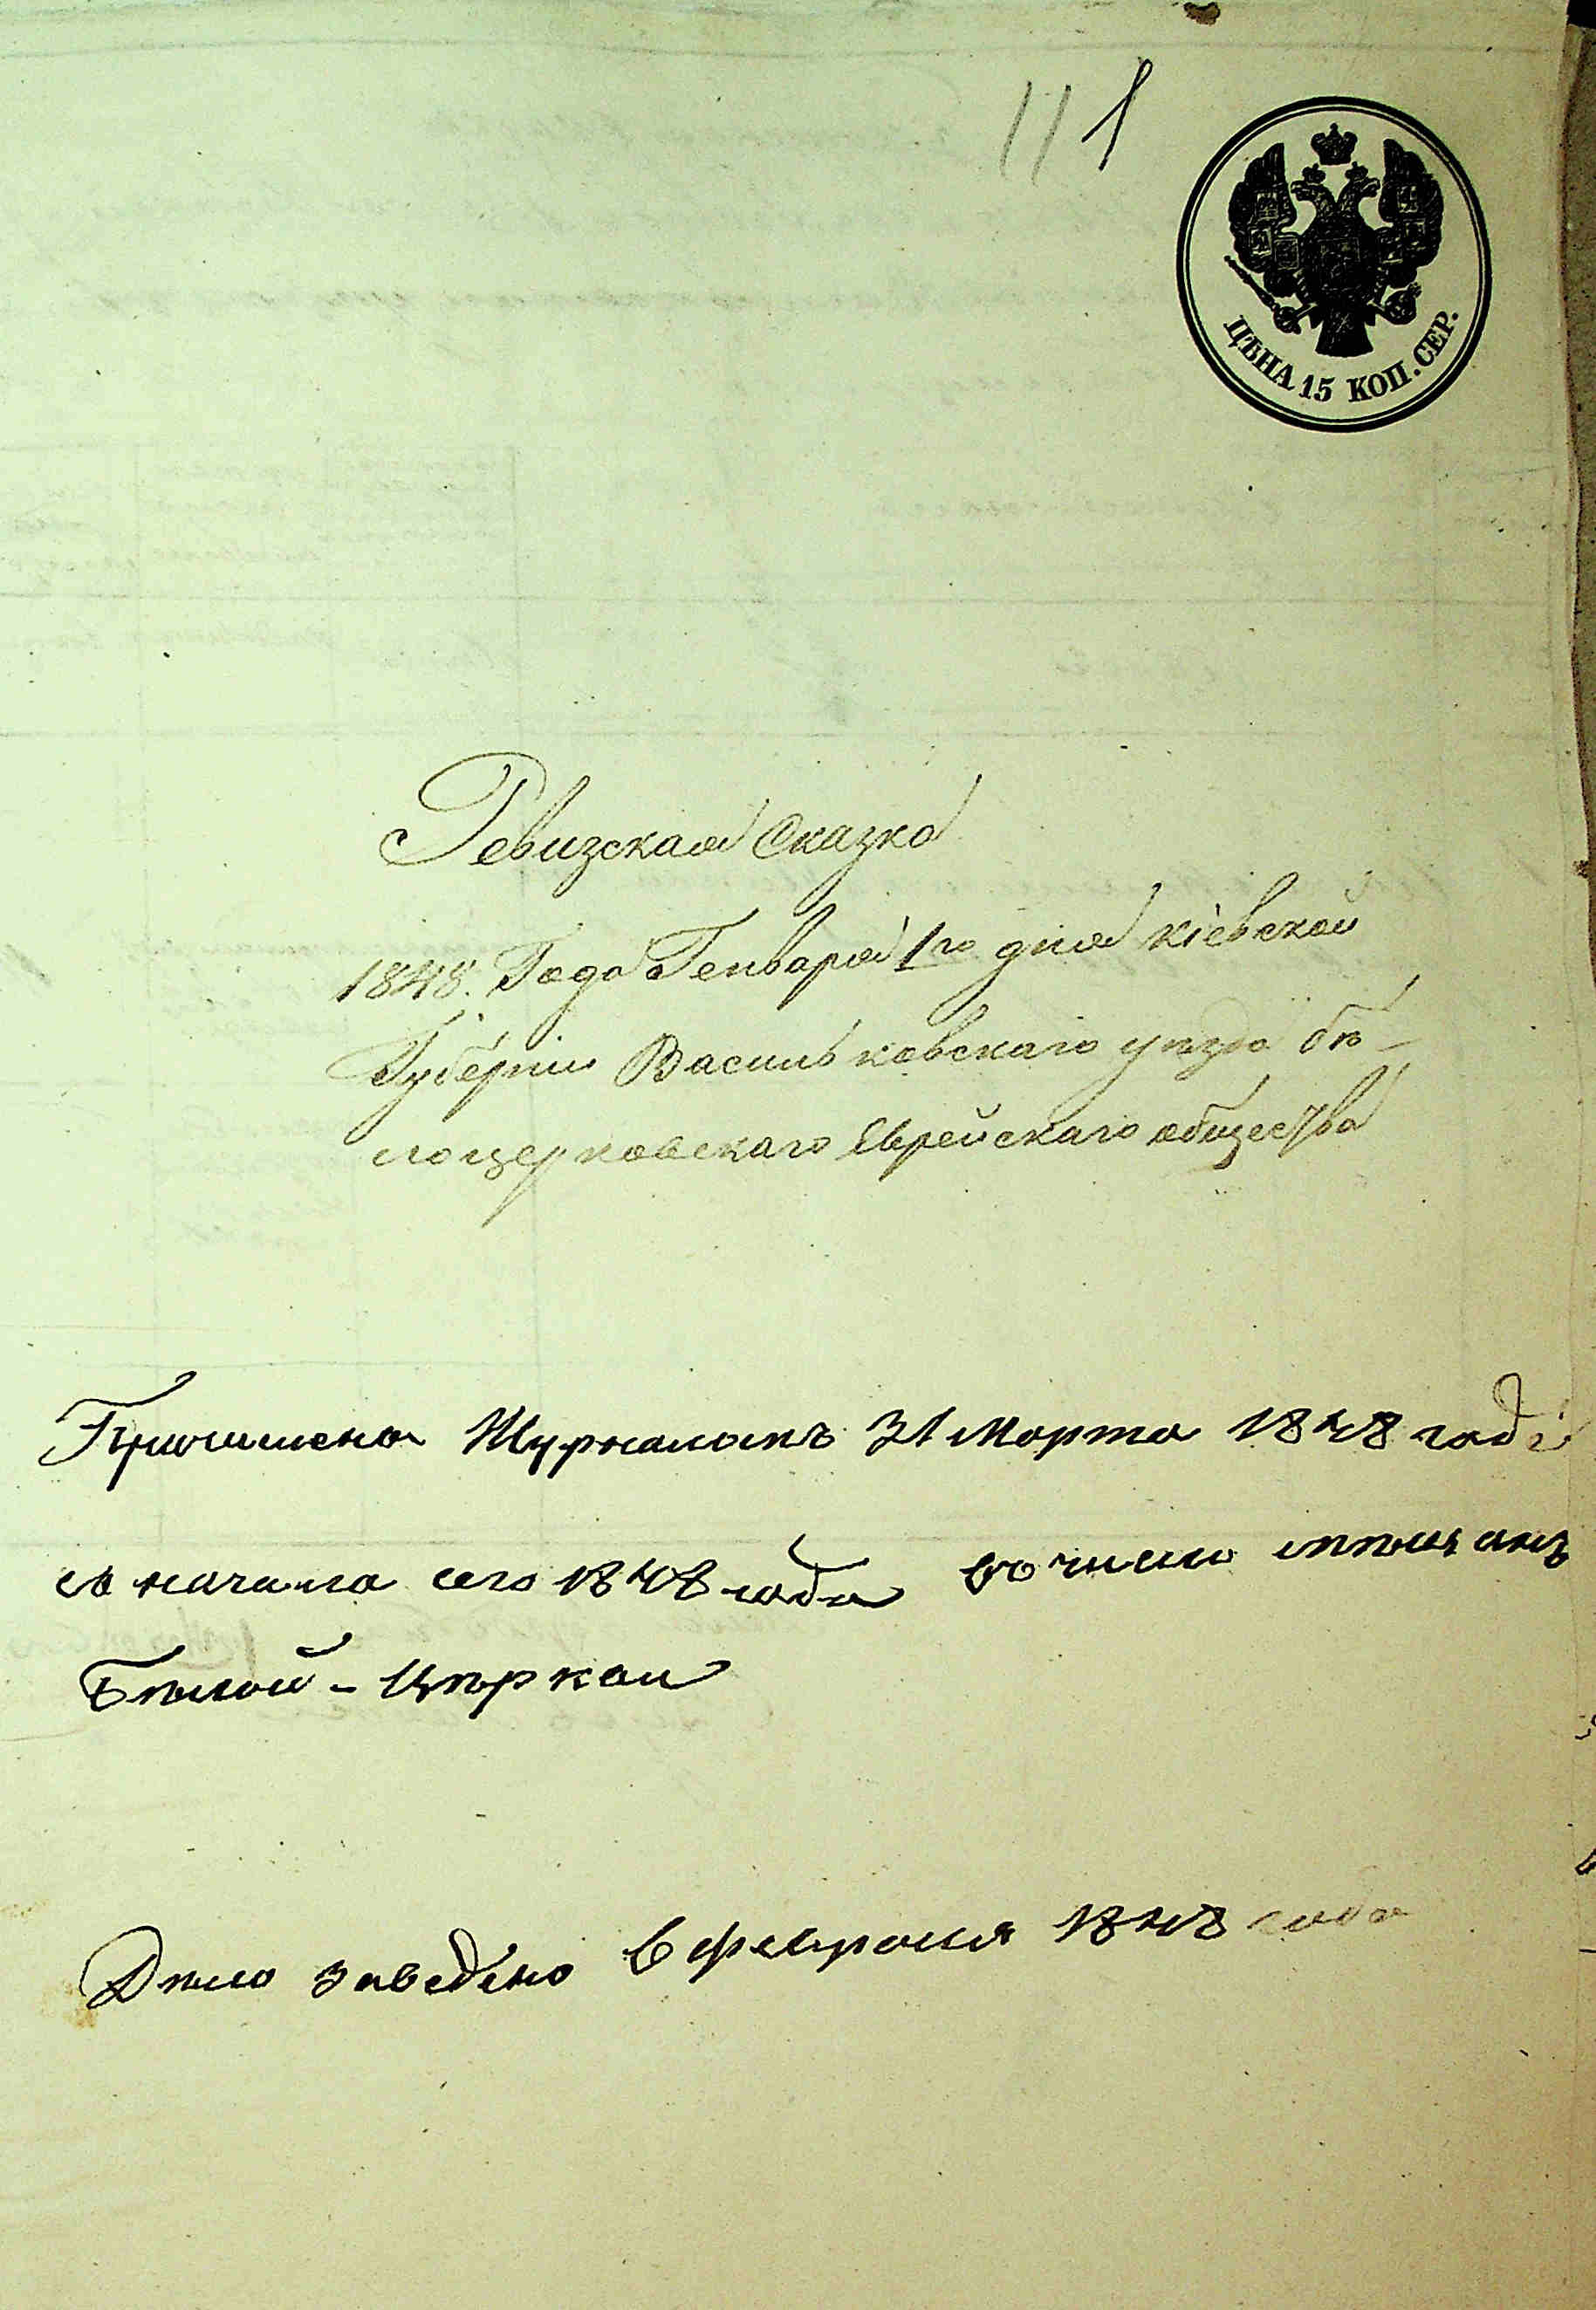 11 1
ЦѢНА 15 КОП. СЕР.
Ревизская Сказка
1848. Года Генваря 1го дня Кіевской
Губерніи Васильковскаго уѣзда бѣ-
лоцерковскаго Еврейскаго общества
Журналомъ 31 Марта 1848 года
съ начала сего 1848 года въ число мѣщанъ
Бѣлой - Цѣркви
Дѣло заведено 6 февраля 1848 года